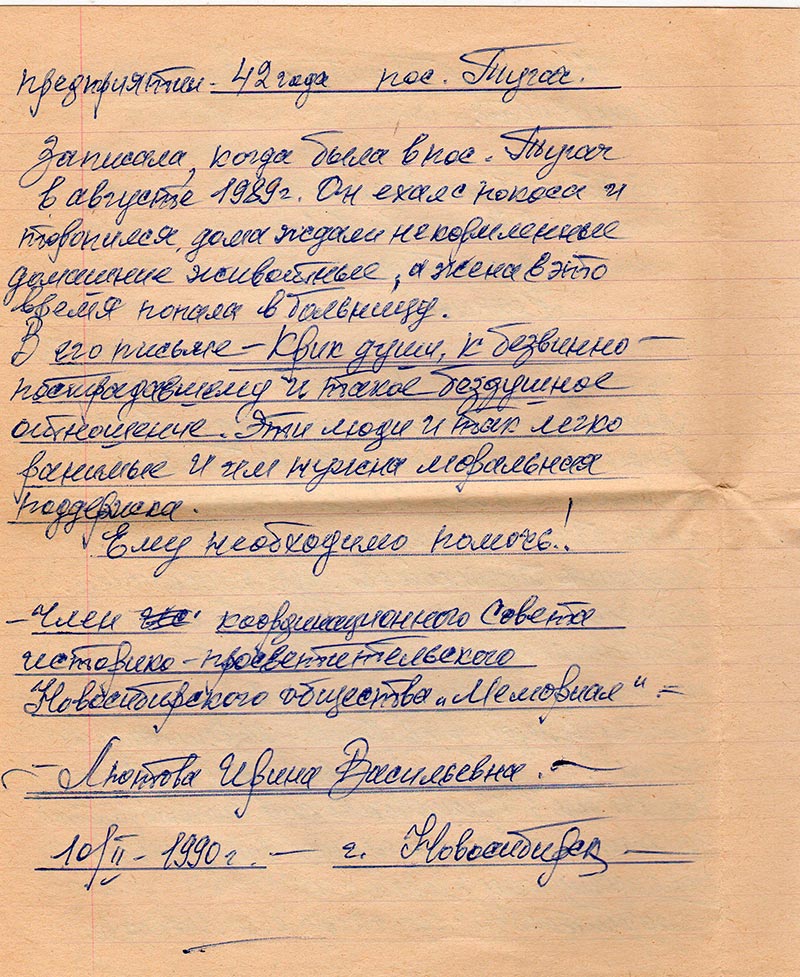 предприятии - 42 года пос. Тугач.
Записала, когда была в пос. Тугач
в августе 1989г. Он ехал с покоса и
торопился, дома ждали некормленные
домашние животные, а жена в это
время попала в больницу.
В его письме - Крик души, к безвинно -
пострадавшему и такое бездушное
отношение. Эти люди и так легко
ранимые и им нужна моральная
поддержка.
Ему необходимо помочь!
- Член координационного Совета
историко - просветительского
Новосибирского общества „Мемориал" -
- Лютова Ирина Васильевна. -
10/II - 1990г. - г. Новосибирск -